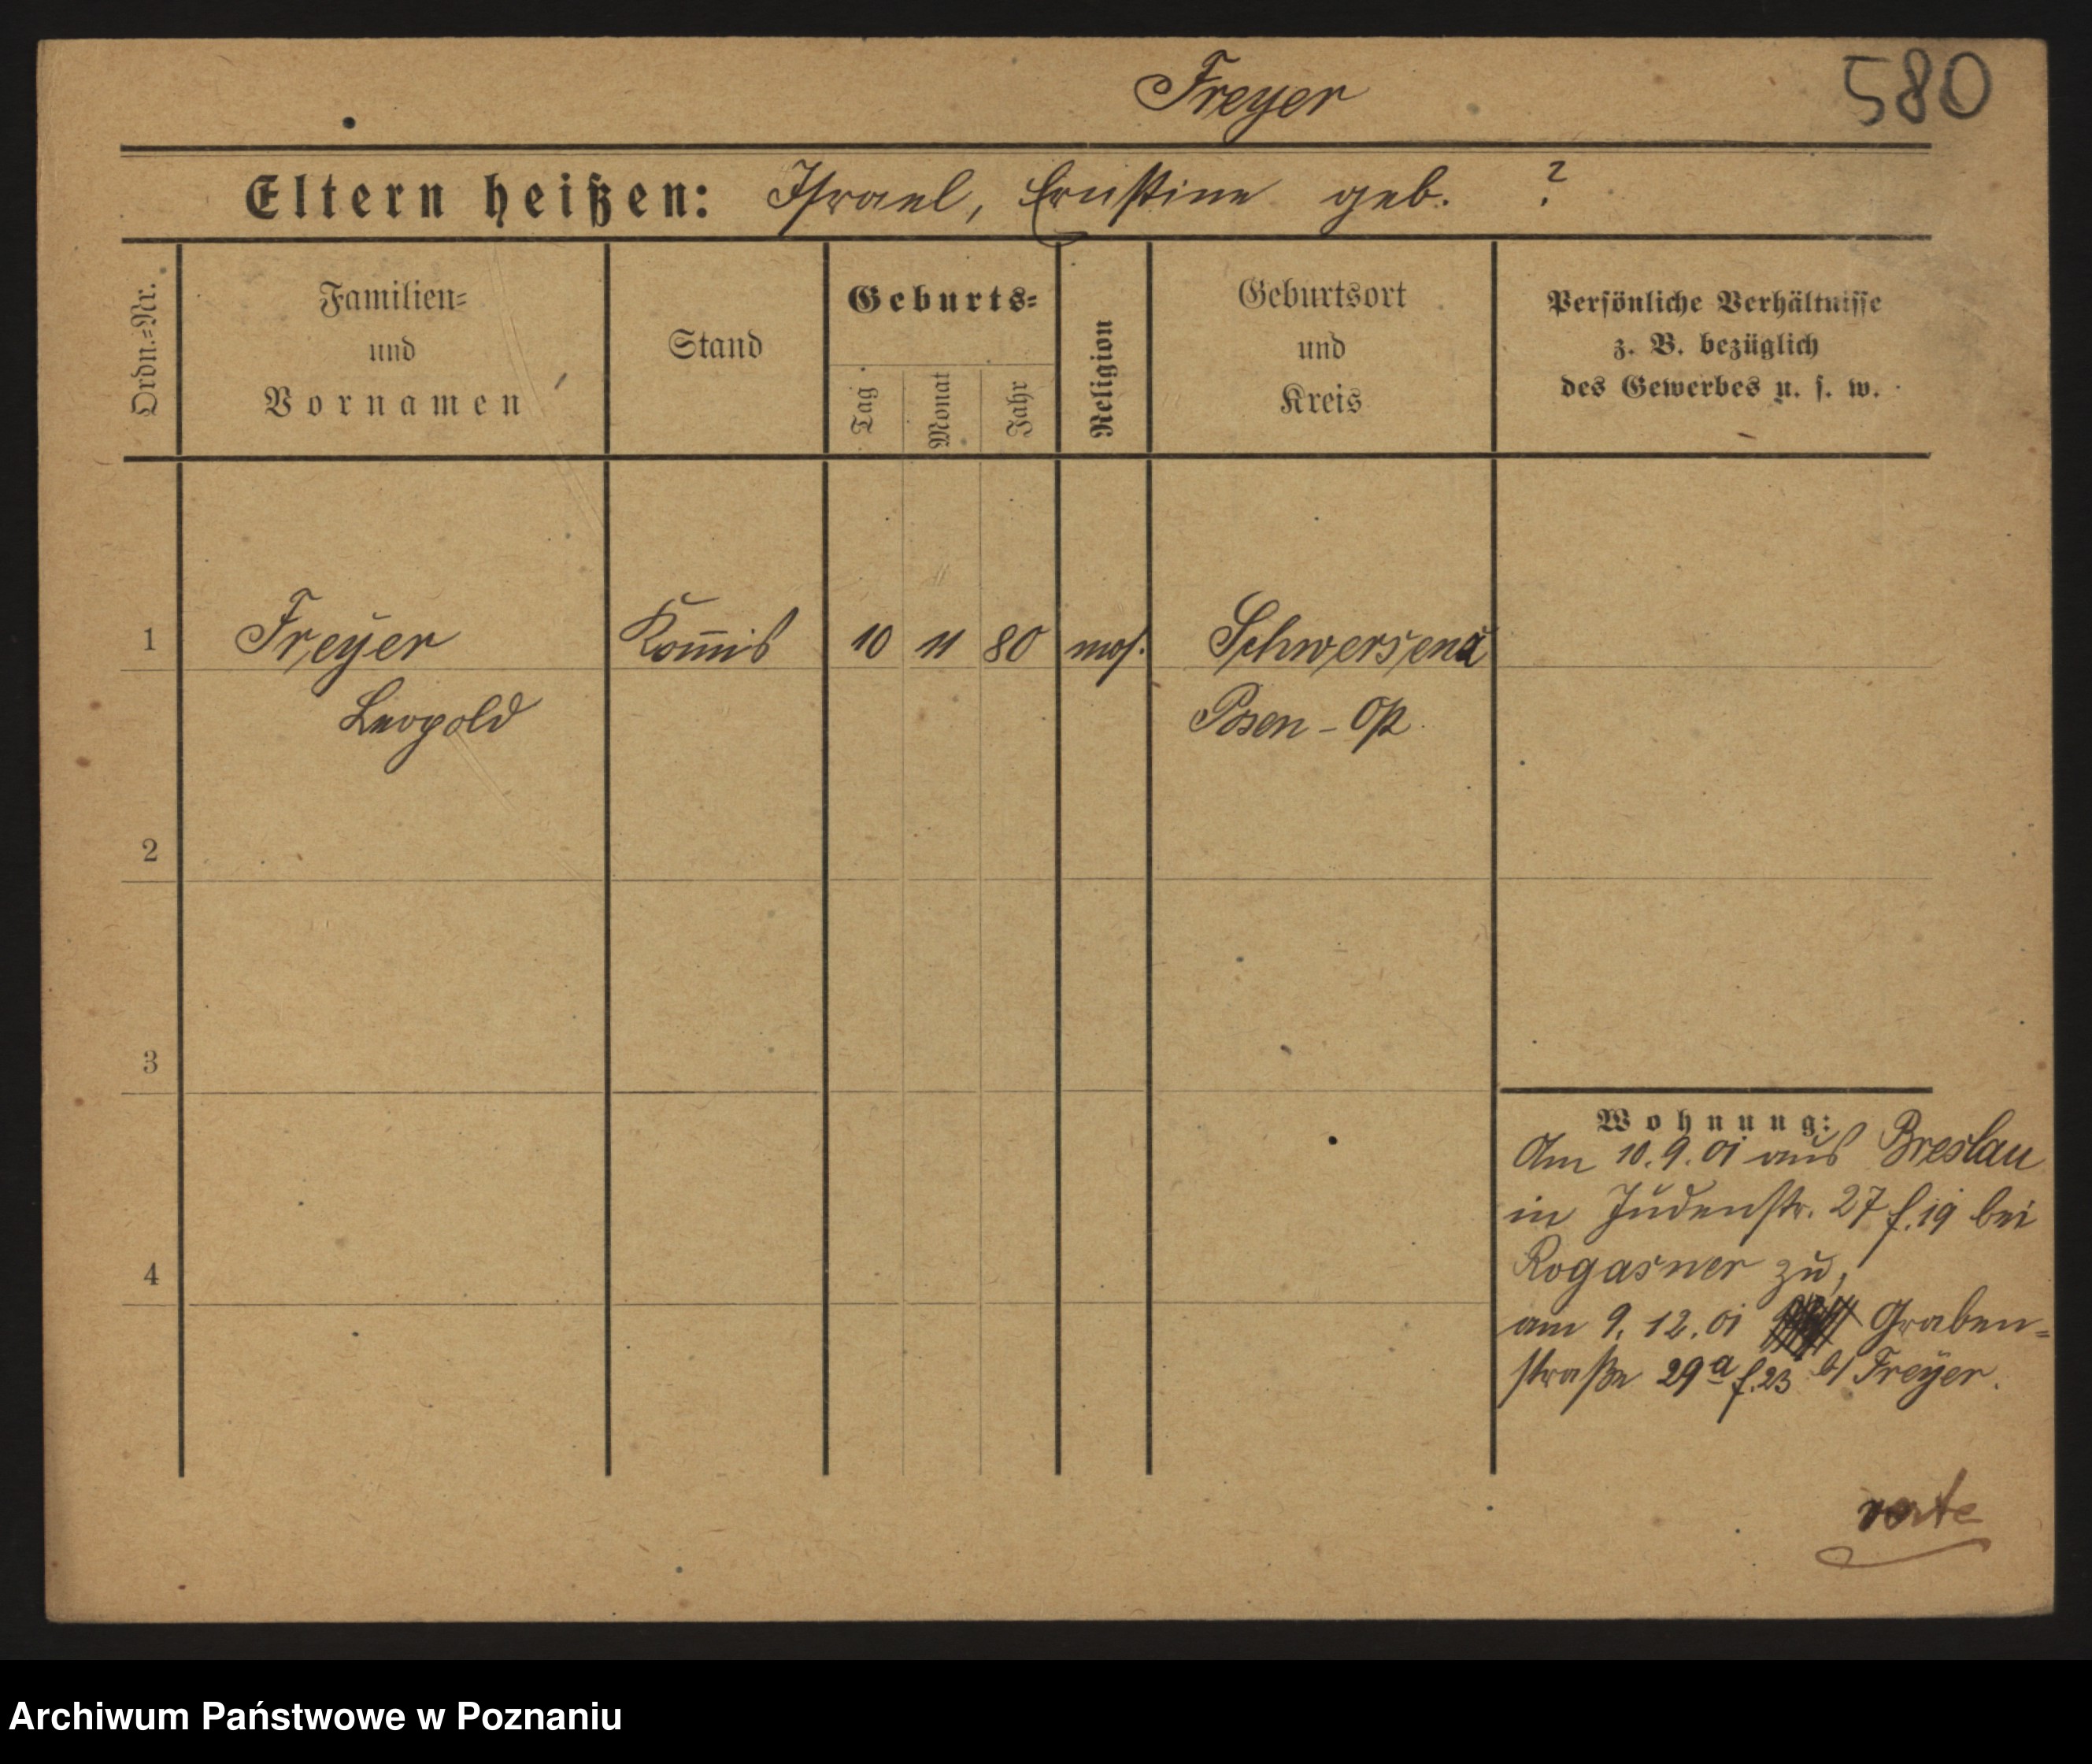 Freyer
580
Eltern heißen: Israel, Ernstine geb. ?
Ordn.=Nr.
Familien=
und
Vornamen
Stand
Geburts=
Tag
Monat
Jahr
Religion
Geburtsort
und
Kreis
Persönliche Verhältnisse
z. B. bezüglich
des Gewerbes u. s. w.
1 Freyer Kom̅is 10 11 80 mos. Schwersenz
Leopold Posen - Op
2
3
4
Wohnung:
Am 10.9.01 aus Breslau
in Judenstr. 27 f. 19 bei
Rogasner zu,
am 9.12.01 Graben=
straße 29a f. 23 b/ Freyer.
verte
Archiwum Państwowe w Poznaniu